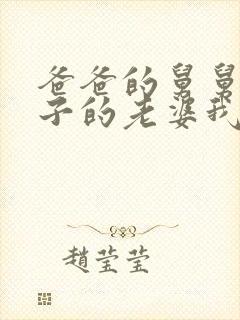 爸爸的舅舅
子的老婆我
趙莹莹